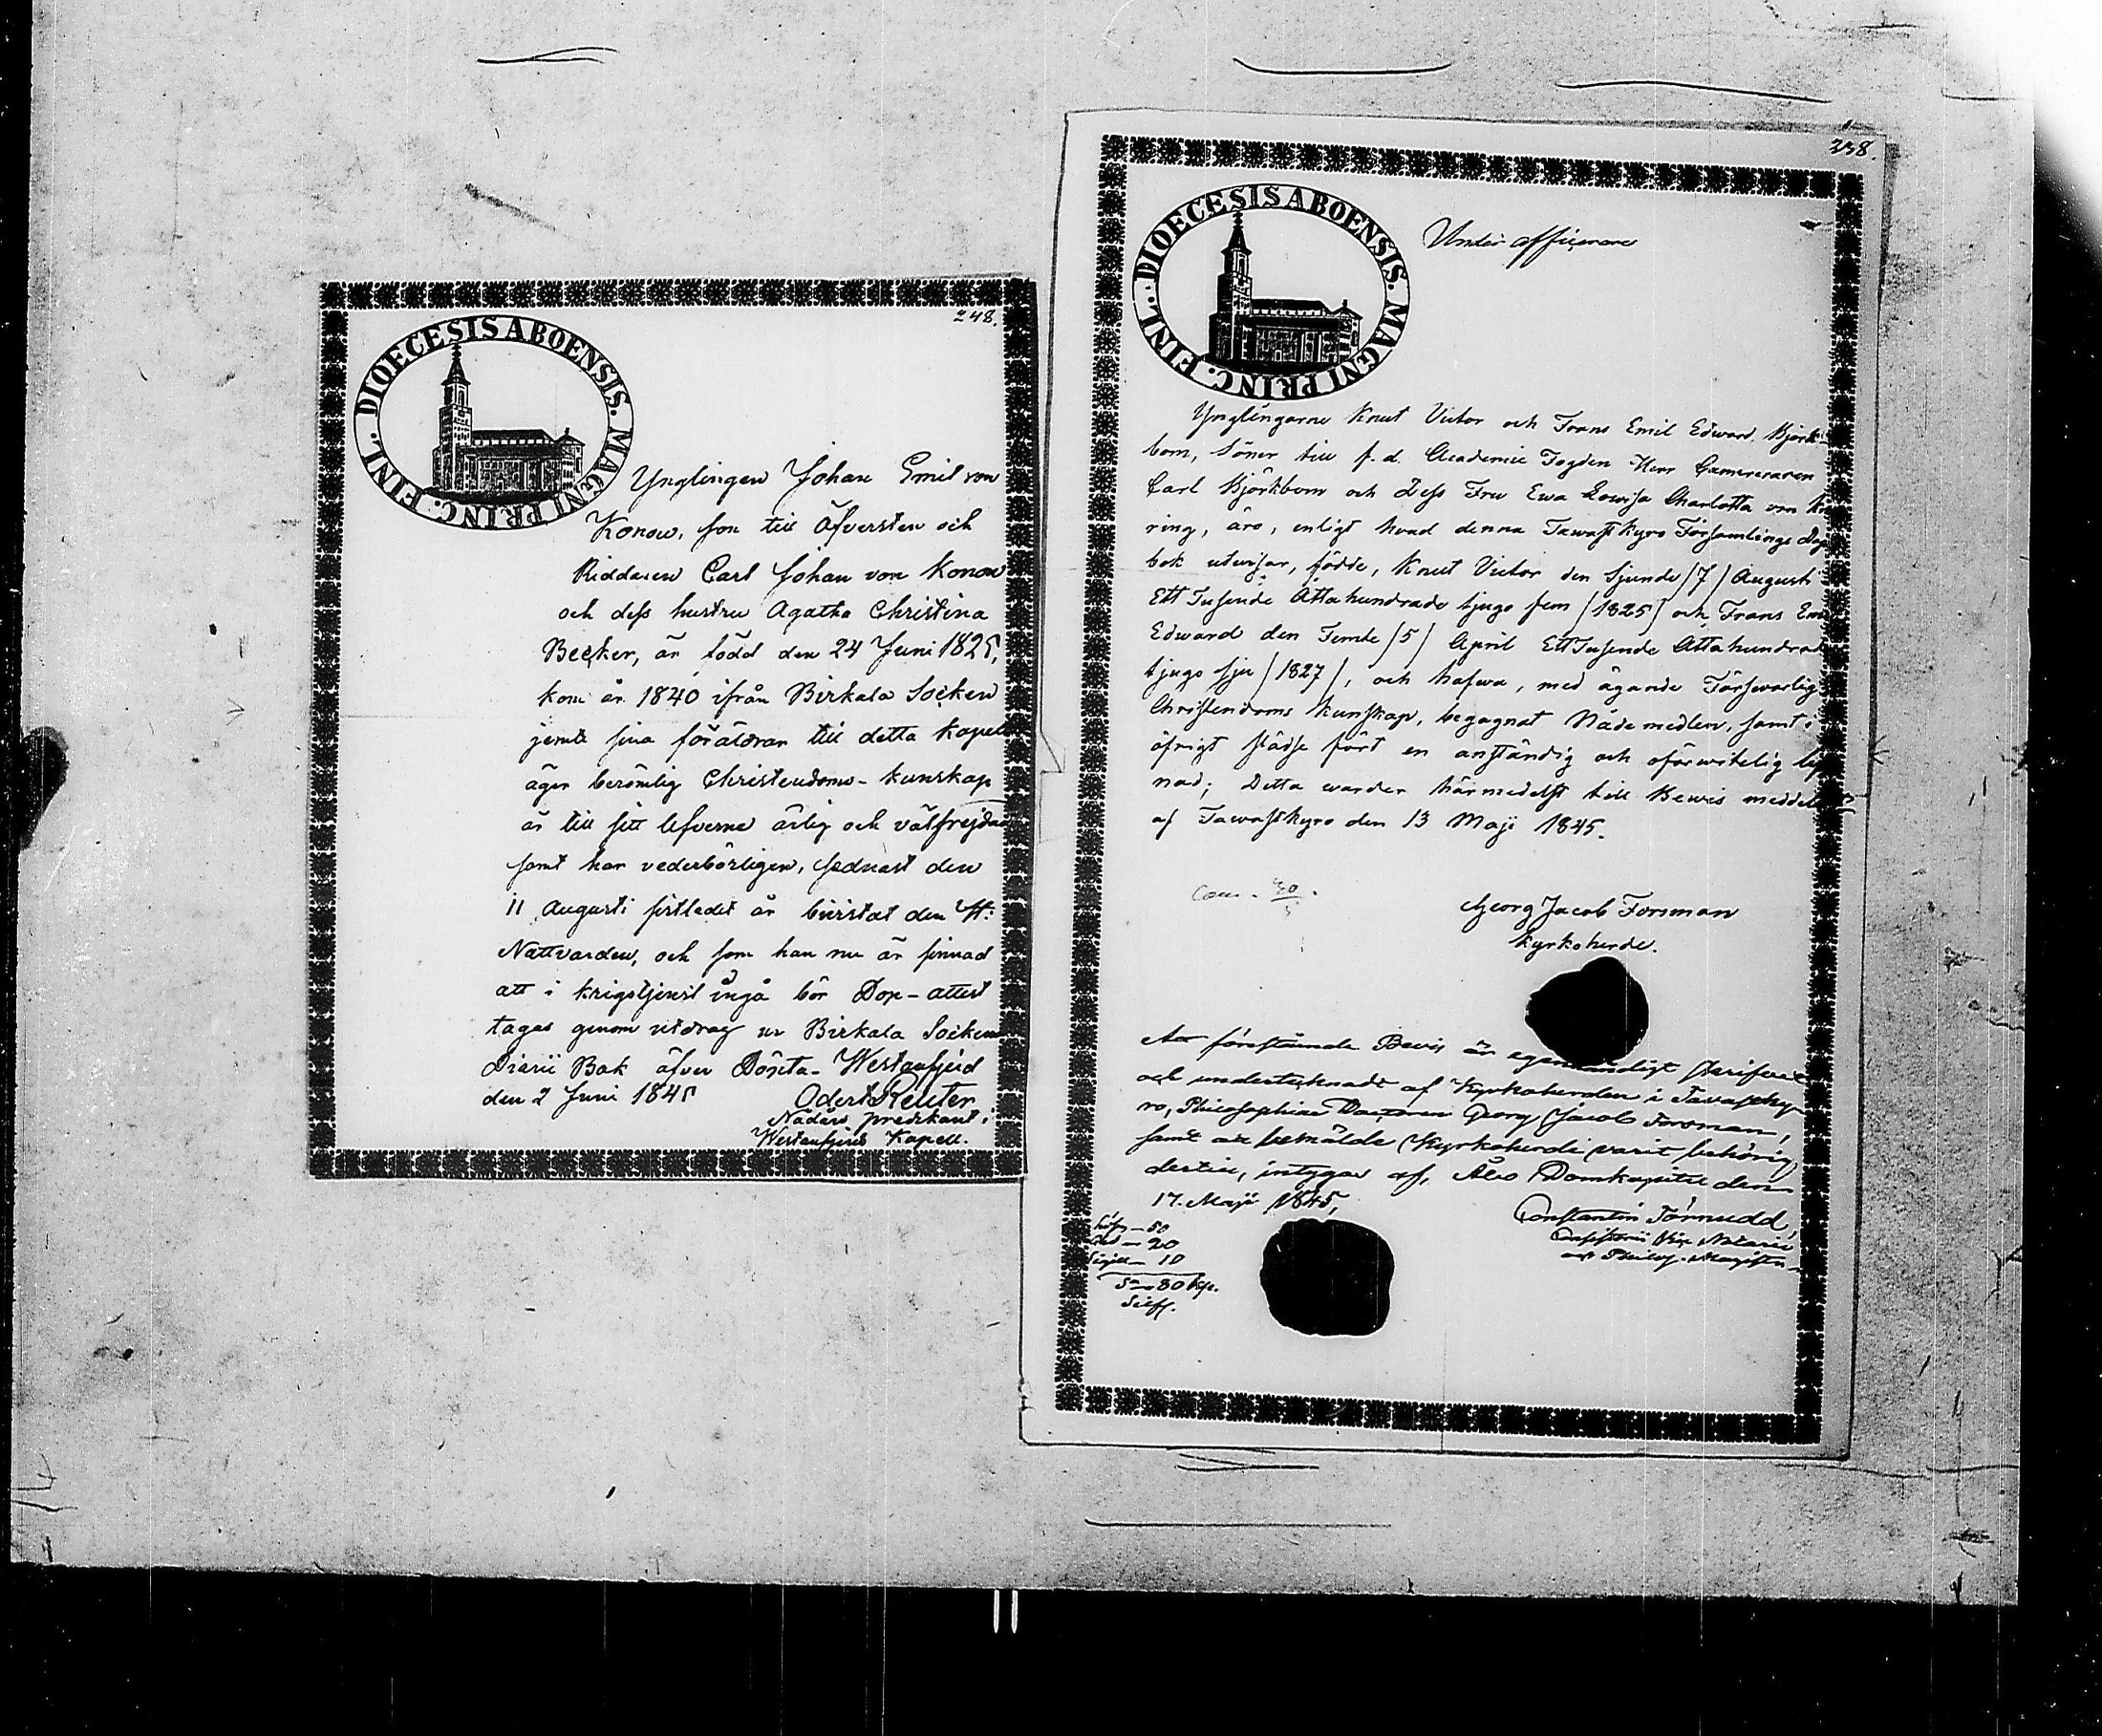 248.
DIOECESIS ABOENSIS. MAGNI PRINC. FINL.
Ynglingen Johan Emil von
Konow, son till Öfversten och
Riddaren Carl Johan von Konow
och dess hustru Agatha Christina
Becker, är född den 24 Juni 1825,
kom år 1840 ifrån Birkala Socken
jemte sina föräldrar till detta Kapell
äger berömlig Christendoms-kunskap
är till sitt lefverne ärlig och välfrejdad
samt har vederbörligen, sednast den
11 Augusti sistledet år bivistat den H:
Nattvarden, och som han nu är sinnad
att i krigstjenst ingå bör Dop-attest
tagas genom utdrag ur Birkala Socken
Diarii Bok öfver Döpta- Westenfjerd
den 2 Juni 1845
Odert Reuter
Nådårs predikant i
Westenfjerds Kapell.
238.
DIOECESIS ABOENSIS. MAGNI PRINC. FINL.
Under officerare
Ynglingarne Knut Victor och Frans Emil Edward Björk-
bom, Söner till f. d. Academie Fogden Herr Camereraren
Carl Björkbom och Dess Fru Ewa Lowisa Charlotta von
ring, äro, enligt hvad denna Tawastkyro Församlings Dop
bok utvisar, födde, Knut Victor den Sjunde /7/ Augusti
Ett Tusende Åttahundrade tjugo fem /1825/ och Frans Emil
Edward den Femte /5/ April Ett Tusende Åttahundrade
tjugo sju /1827/, och hafwa, med ägande Förswarlig
Christendoms kunskap, begagnat Nåde medlen, samt i
öfrigt städse fört en anständig och oförwitelig lef
nad; Detta warder härmedelst till Bewis meddelt
af Tawastkyro den 13 Maji 1845.
Georg Jacob Forsman
Kyrkoherde.
Att förestående Bevis är egenhändigt skrifvet
och undertecknadt af Kyrkoherden i Tavastky-
ro, Philosophiae Doctoren Georg Jacob Forsman,
samt att bemälde Kyrkoherde varit behörig
dertill, intygar af, Åbo Domkapitel den
17. Maji 1845,
Constantin Törnudd,
Consistorii Vice Notarie
och Philos. Magister
Lösn — 50
20
Sigill — 10
Sa 80 kop.
Silfr.